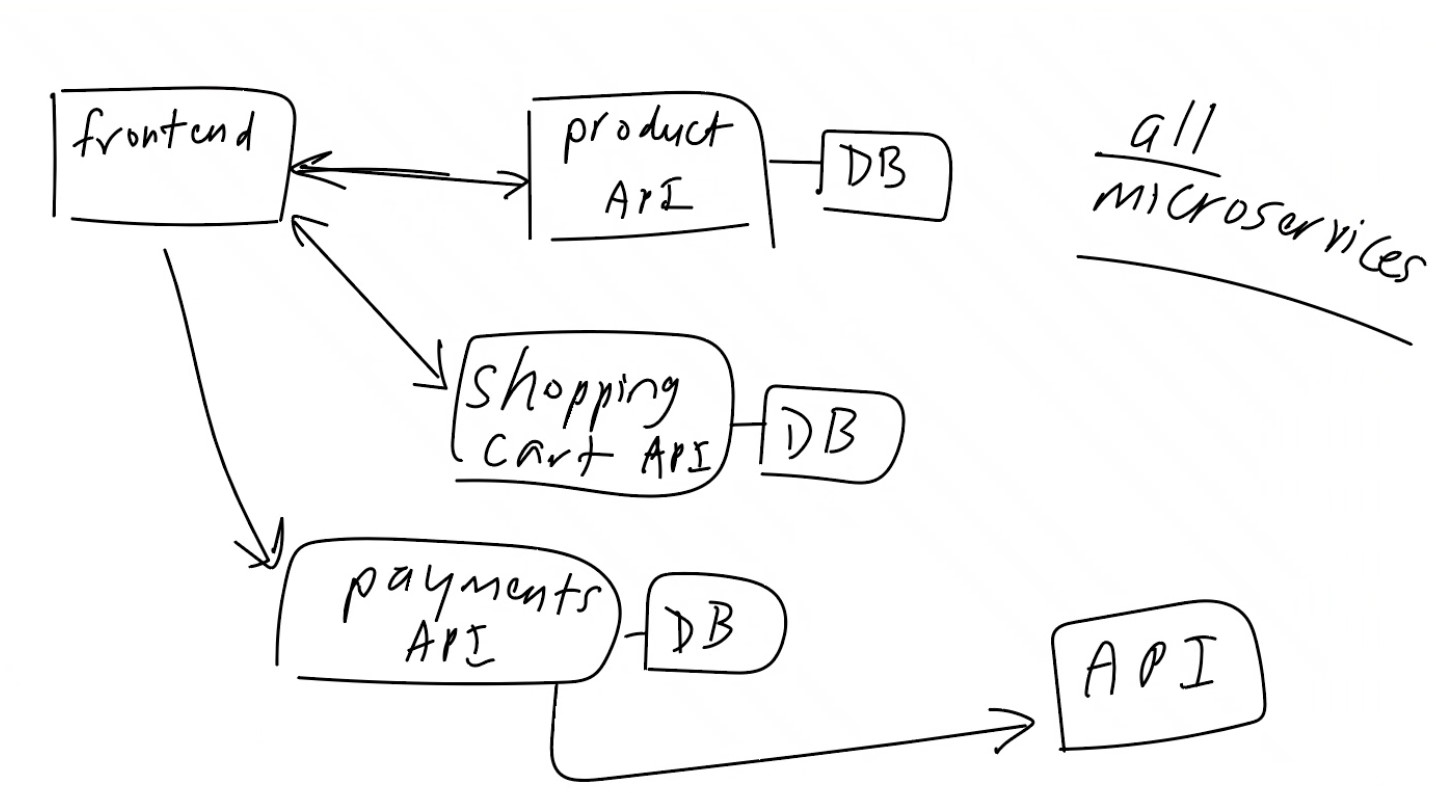 frontend
product
API
DB
all
microservices
shopping
cart API
DB
payments
API
DB
API